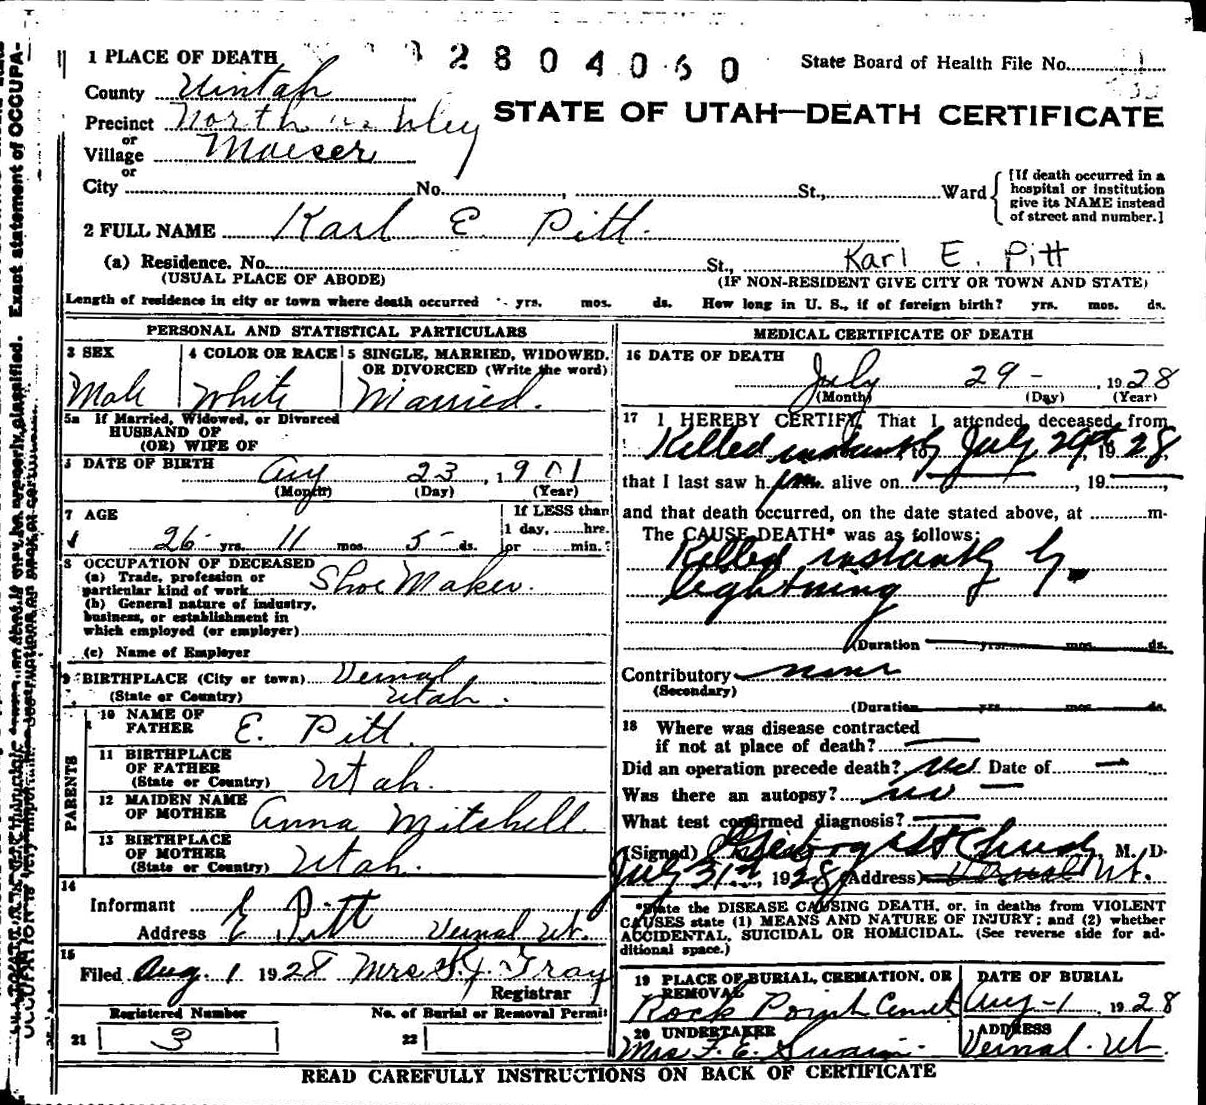 1 PLACE OF DEATH
2804060
State Board of Health File No.
County Uintah
STATE OF UTAH—DEATH CERTIFICATE
Precinct North
or
Village Maeser
or
City No. , St., Ward
[If death occurred in a
hospital or institution
give its NAME instead
of street and number.]
2 FULL NAME Karl E. Pitt.
(a) Residence. No. St., Karl E. Pitt
(USUAL PLACE OF ABODE) (IF NON-RESIDENT GIVE CITY OR TOWN AND STATE)
Length of residence in city or town where death occurred yrs. mos. ds. How long in U. S., if of foreign birth? yrs. mos. ds.
PERSONAL AND STATISTICAL PARTICULARS
3 SEX
Male
4 COLOR OR RACE
White
5 SINGLE, MARRIED, WIDOWED.
OR DIVORCED (Write the word)
Married.
5a If Married, Widowed, or Divorced
HUSBAND OF
(OR) WIFE OF
DATE OF BIRTH
Aug 23, 1901
(Month) (Day) (Year)
7 AGE
26 yrs. 11 mos. 5 ds.
If LESS than
1 day, hrs.
or min.?
8 OCCUPATION OF DECEASED
(a) Trade, profession or
particular kind of work Shoe Maker.
(b) General nature of industry,
business, or establishment in
which employed (or employer)
(c) Name of Employer
9 BIRTHPLACE (City or town) Vernal
(State or Country) Utah.
PARENTS
10 NAME OF
FATHER E. Pitt
11 BIRTHPLACE
OF FATHER
(State or Country) Utah.
12 MAIDEN NAME
OF MOTHER Anna Mitchell.
13 BIRTHPLACE
OF MOTHER
(State or Country) Utah.
14
Informant E Pitt
Address Vernal Ut.
15
Filed Aug. 1 1928 Mrs Gray
Registrar
Registered Number
21 3
No. of Burial or Removal Permit
22
MEDICAL CERTIFICATE OF DEATH
16 DATE OF DEATH
July 29 - , 1928
(Month) (Day) (Year)
17 I HEREBY CERTIFY, That I attended deceased from
Killed instantly to July 29th 1928
that I last saw him alive on , 19 ,
and that death occurred, on the date stated above, at m.
The CAUSE DEATH* was as follows:
Killed instantly by
lightning
(Duration yrs. mos. ds.
Contributory none
(Secondary)
(Duration yrs. mos. ds.
18 Where was disease contracted
if not at place of death?
Did an operation precede death? no Date of
Was there an autopsy? no
What test confirmed diagnosis?
(Signed) M. D.
July 31st, 1928 (Address) Vernal Ut.
*State the DISEASE CAUSING DEATH, or, in deaths from VIOLENT
CAUSES state (1) MEANS AND NATURE OF INJURY; and (2) whether
ACCIDENTAL, SUICIDAL OR HOMICIDAL. (See reverse side for ad-
ditional space.)
19 PLACE OF BURIAL, CREMATION, OR
REMOVAL
Rock Point Cemet
DATE OF BURIAL
Aug - 1 1928
20 UNDERTAKER
Mrs F. E. Swain.
ADDRESS
Vernal. Ut.
READ CAREFULLY INSTRUCTIONS ON BACK OF CERTIFICATE
Exact statement of OCCUPA-